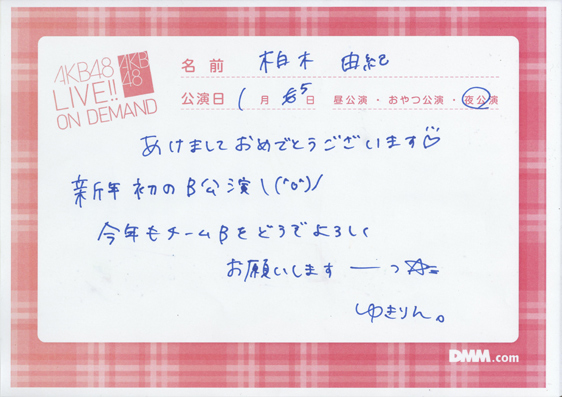 AKB48
LIVE!!
ON DEMAND
AKB
48
名前 柏木 由紀
公演日 1月 5日 昼公演・おやつ公演・夜公演
あけましておめでとうございます♡
新年初のB公演\(^o^)/
今年もチームBをどうぞよろしく
お願いします ーっ☆=
ゆきりん。
DMM.com